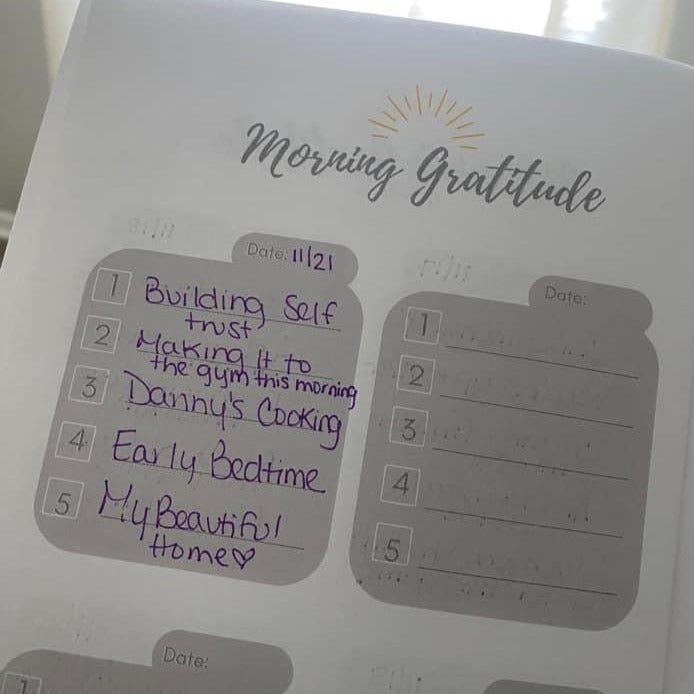 Morning Gratitude
Date: 11/21
1 Building Self
trust
2 Making it to
the gym this morning
3 Danny's Cooking
4 Early Bedtime
5 My Beautiful
Home♡
Date:
1
2
3
4
5
Date:
1